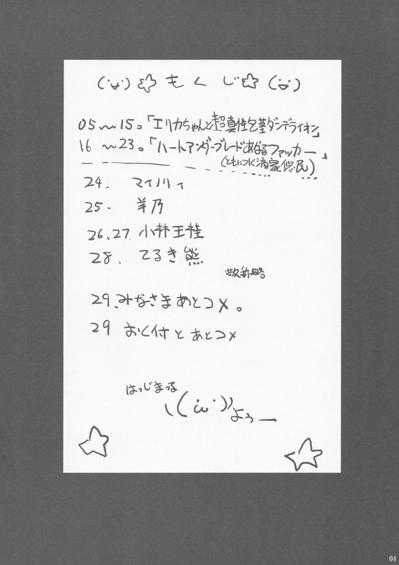 (・ω・)☆もくじ☆(・ω・)
05〜15。「エリカちゃんと超真性乞墓ダンデライオン」
16〜23。「ハートアンダーブレードあなるファッカー」
24. マイノリィ
25. 羊乃
26,27 小林王桂
28. てるき熊
敬称略
29 みなさまあとコメ。
29 おく付とあとコメ
はっじまる
\(・ω・)ノ よぅー
04